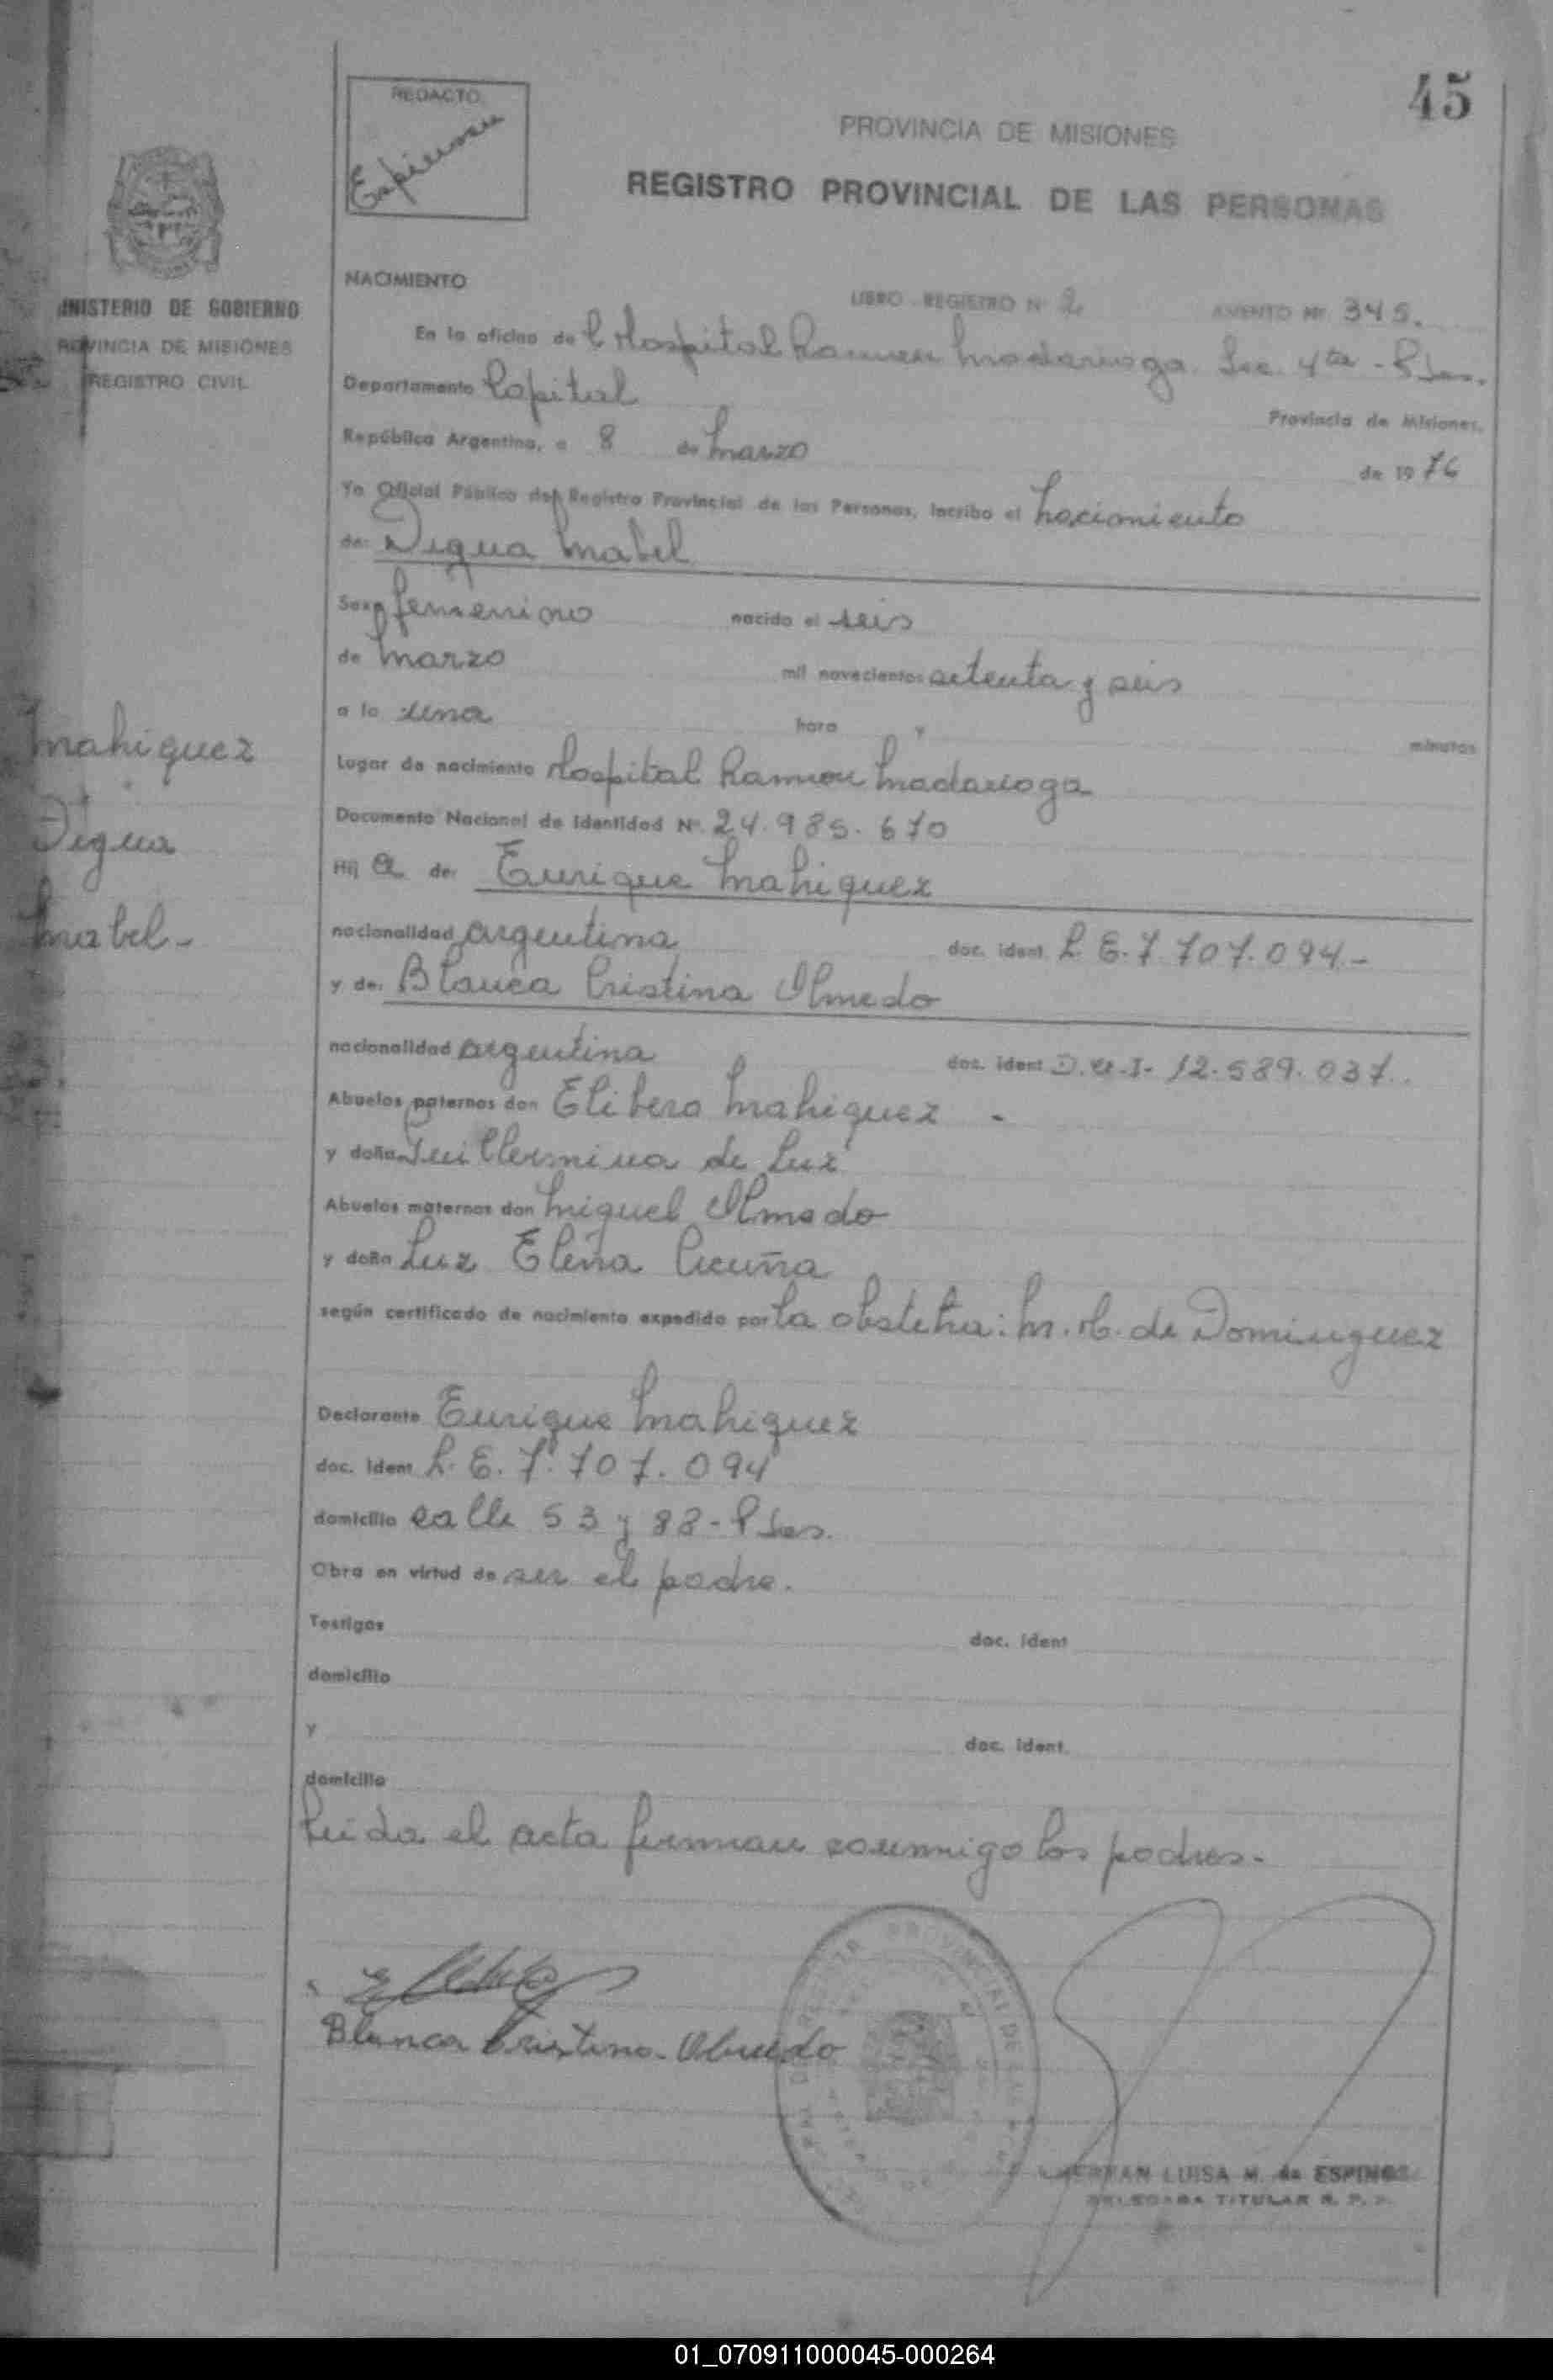 45
REDACTO
PROVINCIA DE MISIONES
REGISTRO PROVINCIAL DE LAS PERSONAS
MINISTERIO DE GOBIERNO
PROVINCIA DE MISIONES
REGISTRO CIVIL
NACIMIENTO
LIBRO REGISTRO Nº 2 ASIENTO Nº 345.
En la oficina de Hospital Ramon Madariaga. Sec. 4ta - Pdas.
Departamento Capital
Provincia de Misiones,
República Argentina, a 8 de Marzo de 1976
Yo Oficial Público del Registro Provincial de las Personas, incribo el nacimiento
de: Digna Mabel
Sexo femenino nacido el seis
de Marzo mil novecientos setenta y seis
a la una hora y minutos
Lugar de nacimiento Hospital Ramon Madariaga
Documento Nacional de Identidad Nº 24.985.670
Hij a de: Enrique Mahiquez
nacionalidad argentina doc. ident. L.E. 7.707.094.-
y de: Blanca Cristina Olmedo
nacionalidad argentina doc. ident. D.N.I. 12.589.037.
Abuelos paternos don Elibero Mahiquez -
y doña Guillermina de Luz
Abuelos maternos don Miguel Olmedo
y doña Luz Elena Vicuña
según certificado de nacimiento expedido por la obstetra: M. H. de Dominguez
Declarante Enrique Mahiquez
doc. ident L.E. 7.707.094
domicilio calle 53 y 88 - Pdas.
Obra en virtud de ser el padre.
Testigos doc. ident
domicilio
y doc. ident.
domicilio
Leida el acta firman conmigo los padres.-
Mahiquez
Digna
Mabel-
Blanca Cristina Olmedo
LUISA M. de ESPINOSA
DELEGADA TITULAR R. P. P.
01_070911000045-000264